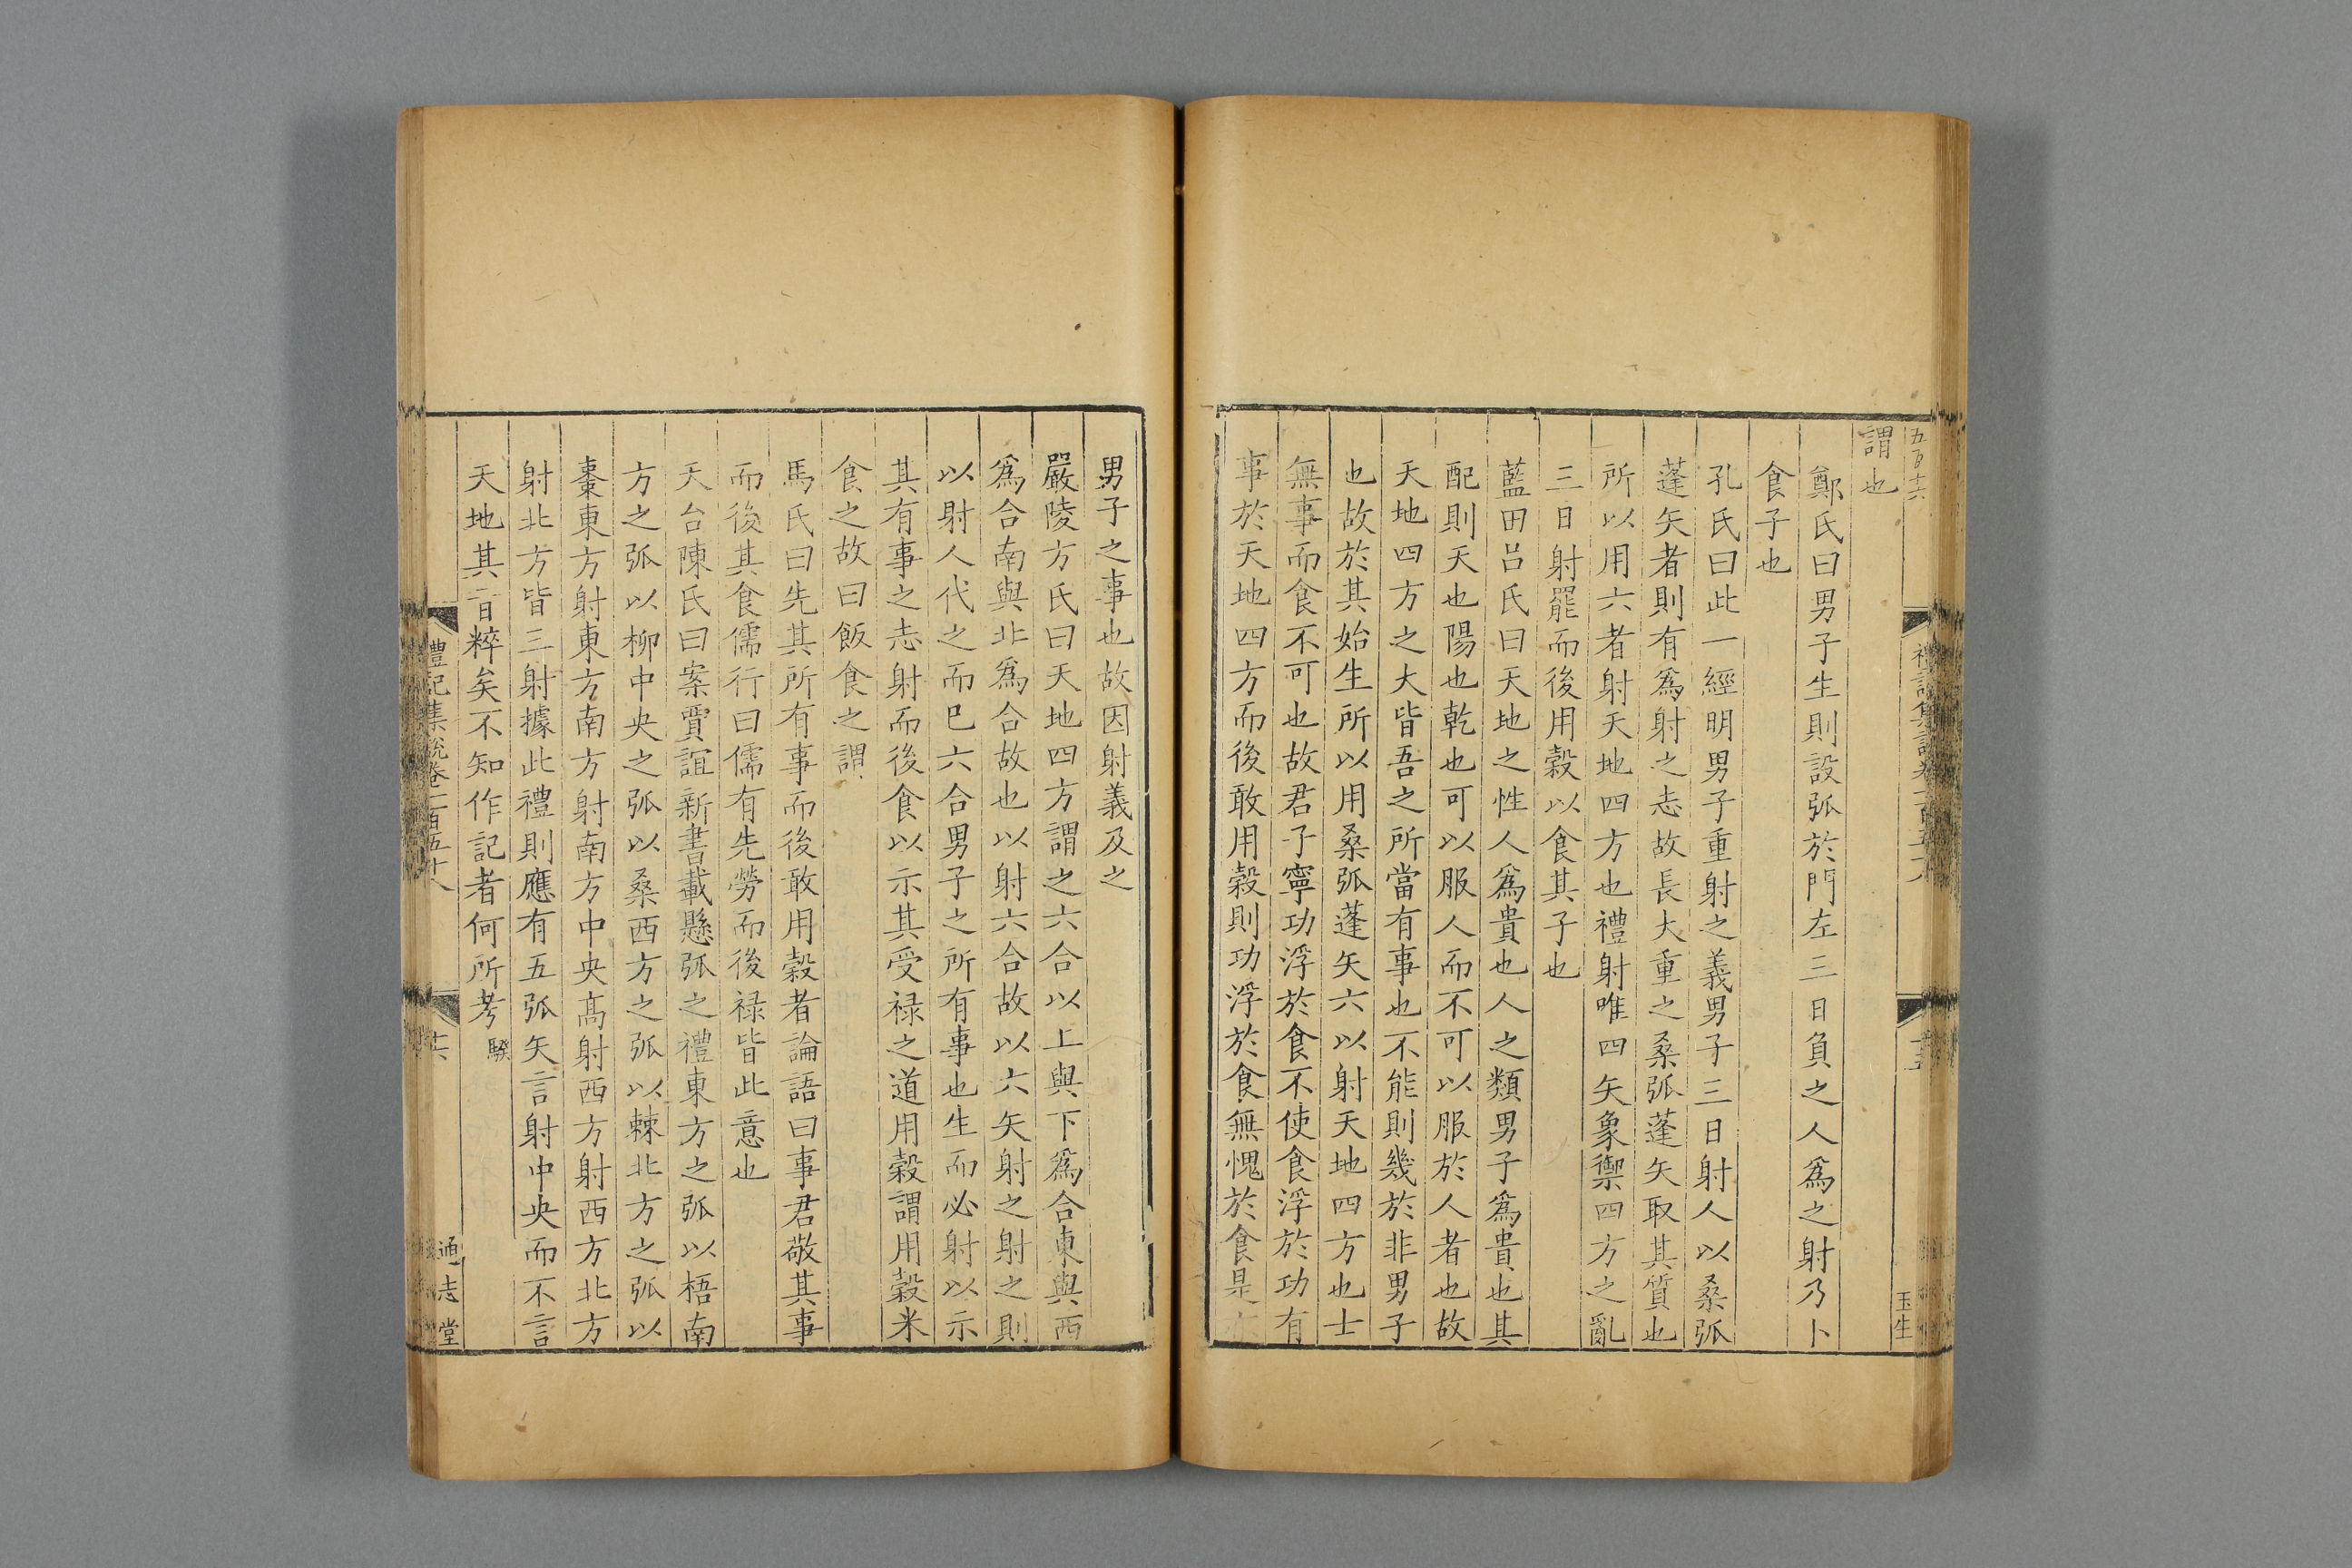 五百十六
謂也
鄭氏曰男子生則設弧於門左三日負之人為之射乃卜
食子也
孔氏曰此一經明男子重射之義男子三日射人以桑弧
蓬矢者則有為射之志故長大重之桑弧蓬矢取其質也
所以用六者射天地四方也禮射唯四矢象禦四方之亂
三日射罷而後用穀以食其子也
藍田呂氏曰天地之性人為貴也人之類男子為貴也其
配則天也陽也乾也可以服人而不可以服於人者也故
天地四方之大皆吾之所當有事也不能則幾於非男子
也故於其始生所以用桑弧蓬矢六以射天地四方也士
無事而食不可也故君子寧功浮於食不使食浮於功有
事於天地四方而後敢用穀則功浮於食無愧於食是
玉生
男子之事也故因射義及之
嚴陵方氏曰天地四方謂之六合以上與下為合東與西
為合南與北為合故也以射六合故以六矢射之射之則
以射人代之而已六合男子之所有事也生而必射以示
其有事之志射而後食以示其受祿之道用穀謂用穀米
食之故曰飯食之謂
馬氏曰先其所有事而後敢用穀者論語曰事君敬其事
而後其食儒行曰儒有先勞而後祿皆此意也
天台陳氏曰案賈誼新書載懸弧之禮東方之弧以梧南
方之弧以柳中央之弧以桑西方之弧以棘北方之弧以
棗東方射東方南方射南方中央高射西方射西方北方
射北方皆三射據此禮則應有五弧矢言射中央而不言
天地其旨粹矣不知作記者何所考 騤
禮記集說卷一百五十八
十六
通志堂